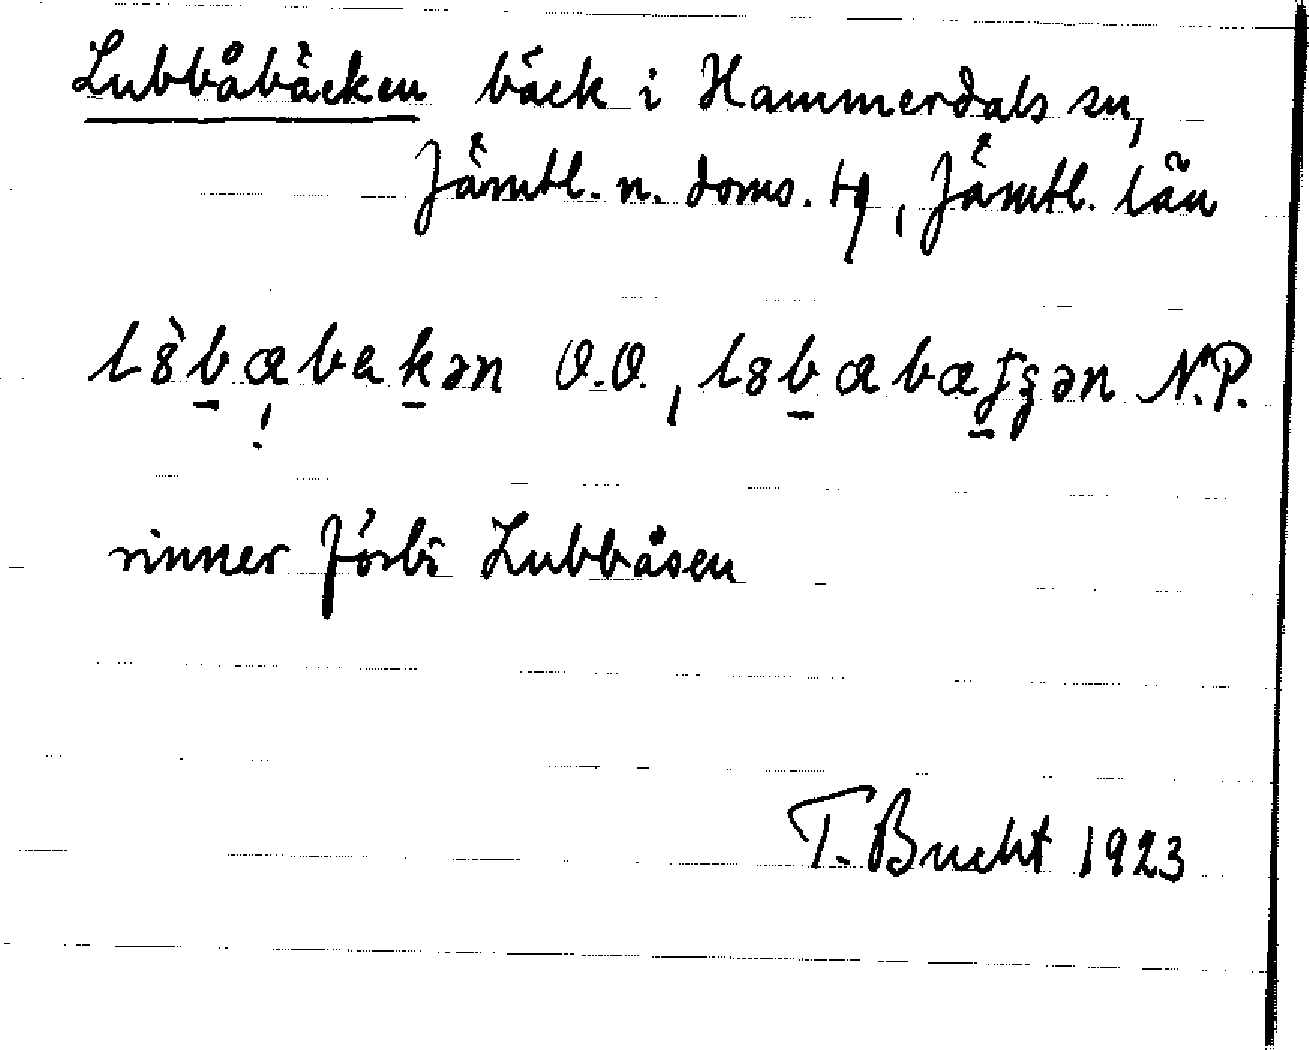 Lubbåbäcken bäck i Hammerdals sn,
Jämtl. n. doms. tg, Jämtl. län
l8̀b̲a̩bak̲ən O.O., l8b̲abaɟ̲ʒən N.P.
rinner förbi Lubbåsen
T. Bucht 1923